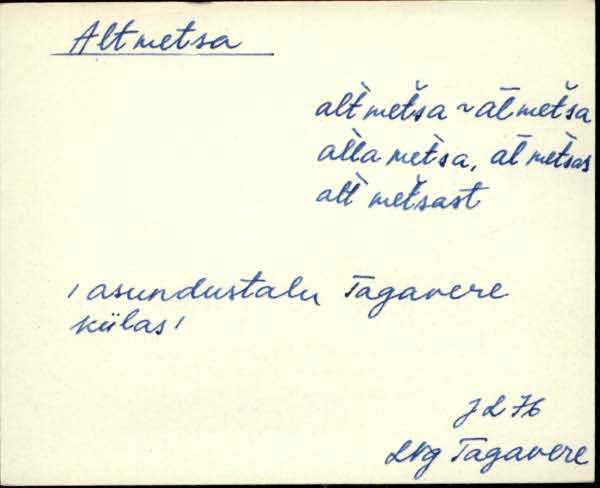 Altmetsa
al̀t metša ~ āl metša
al̀la metsa, āl metsas
al̀t metšast
/ asundustalu Tagavere
külas /
J L 76
LNg Tagavere